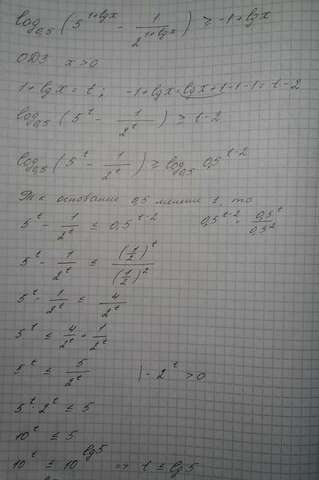 log₀,₅ (5^(1+lgx) - 1/2^(1+lgx)) ≥ -1+lgx
ОДЗ x>0
1+lgx = t; -1+lgx = lgx+1-1-1 = t-2
log₀,₅ (5^t - 1/2^t) ≥ t-2
log₀,₅ (5^t - 1/2^t) ≥ log₀,₅ 0,5^(t-2)
Т к основание 0,5 меньше 1, то
5^t - 1/2^t ≤ 0,5^(t-2) 0,5^(t-2) = 0,5^t/0,5²
5^t - 1/2^t ≤ (1/2)^t/(1/2)²
5^t - 1/2^t ≤ 4/2^t
5^t ≤ 4/2^t + 1/2^t
5^t ≤ 5/2^t | · 2^t > 0
5^t · 2^t ≤ 5
10^t ≤ 5
10^t ≤ 10^(lg5) => t ≤ lg5